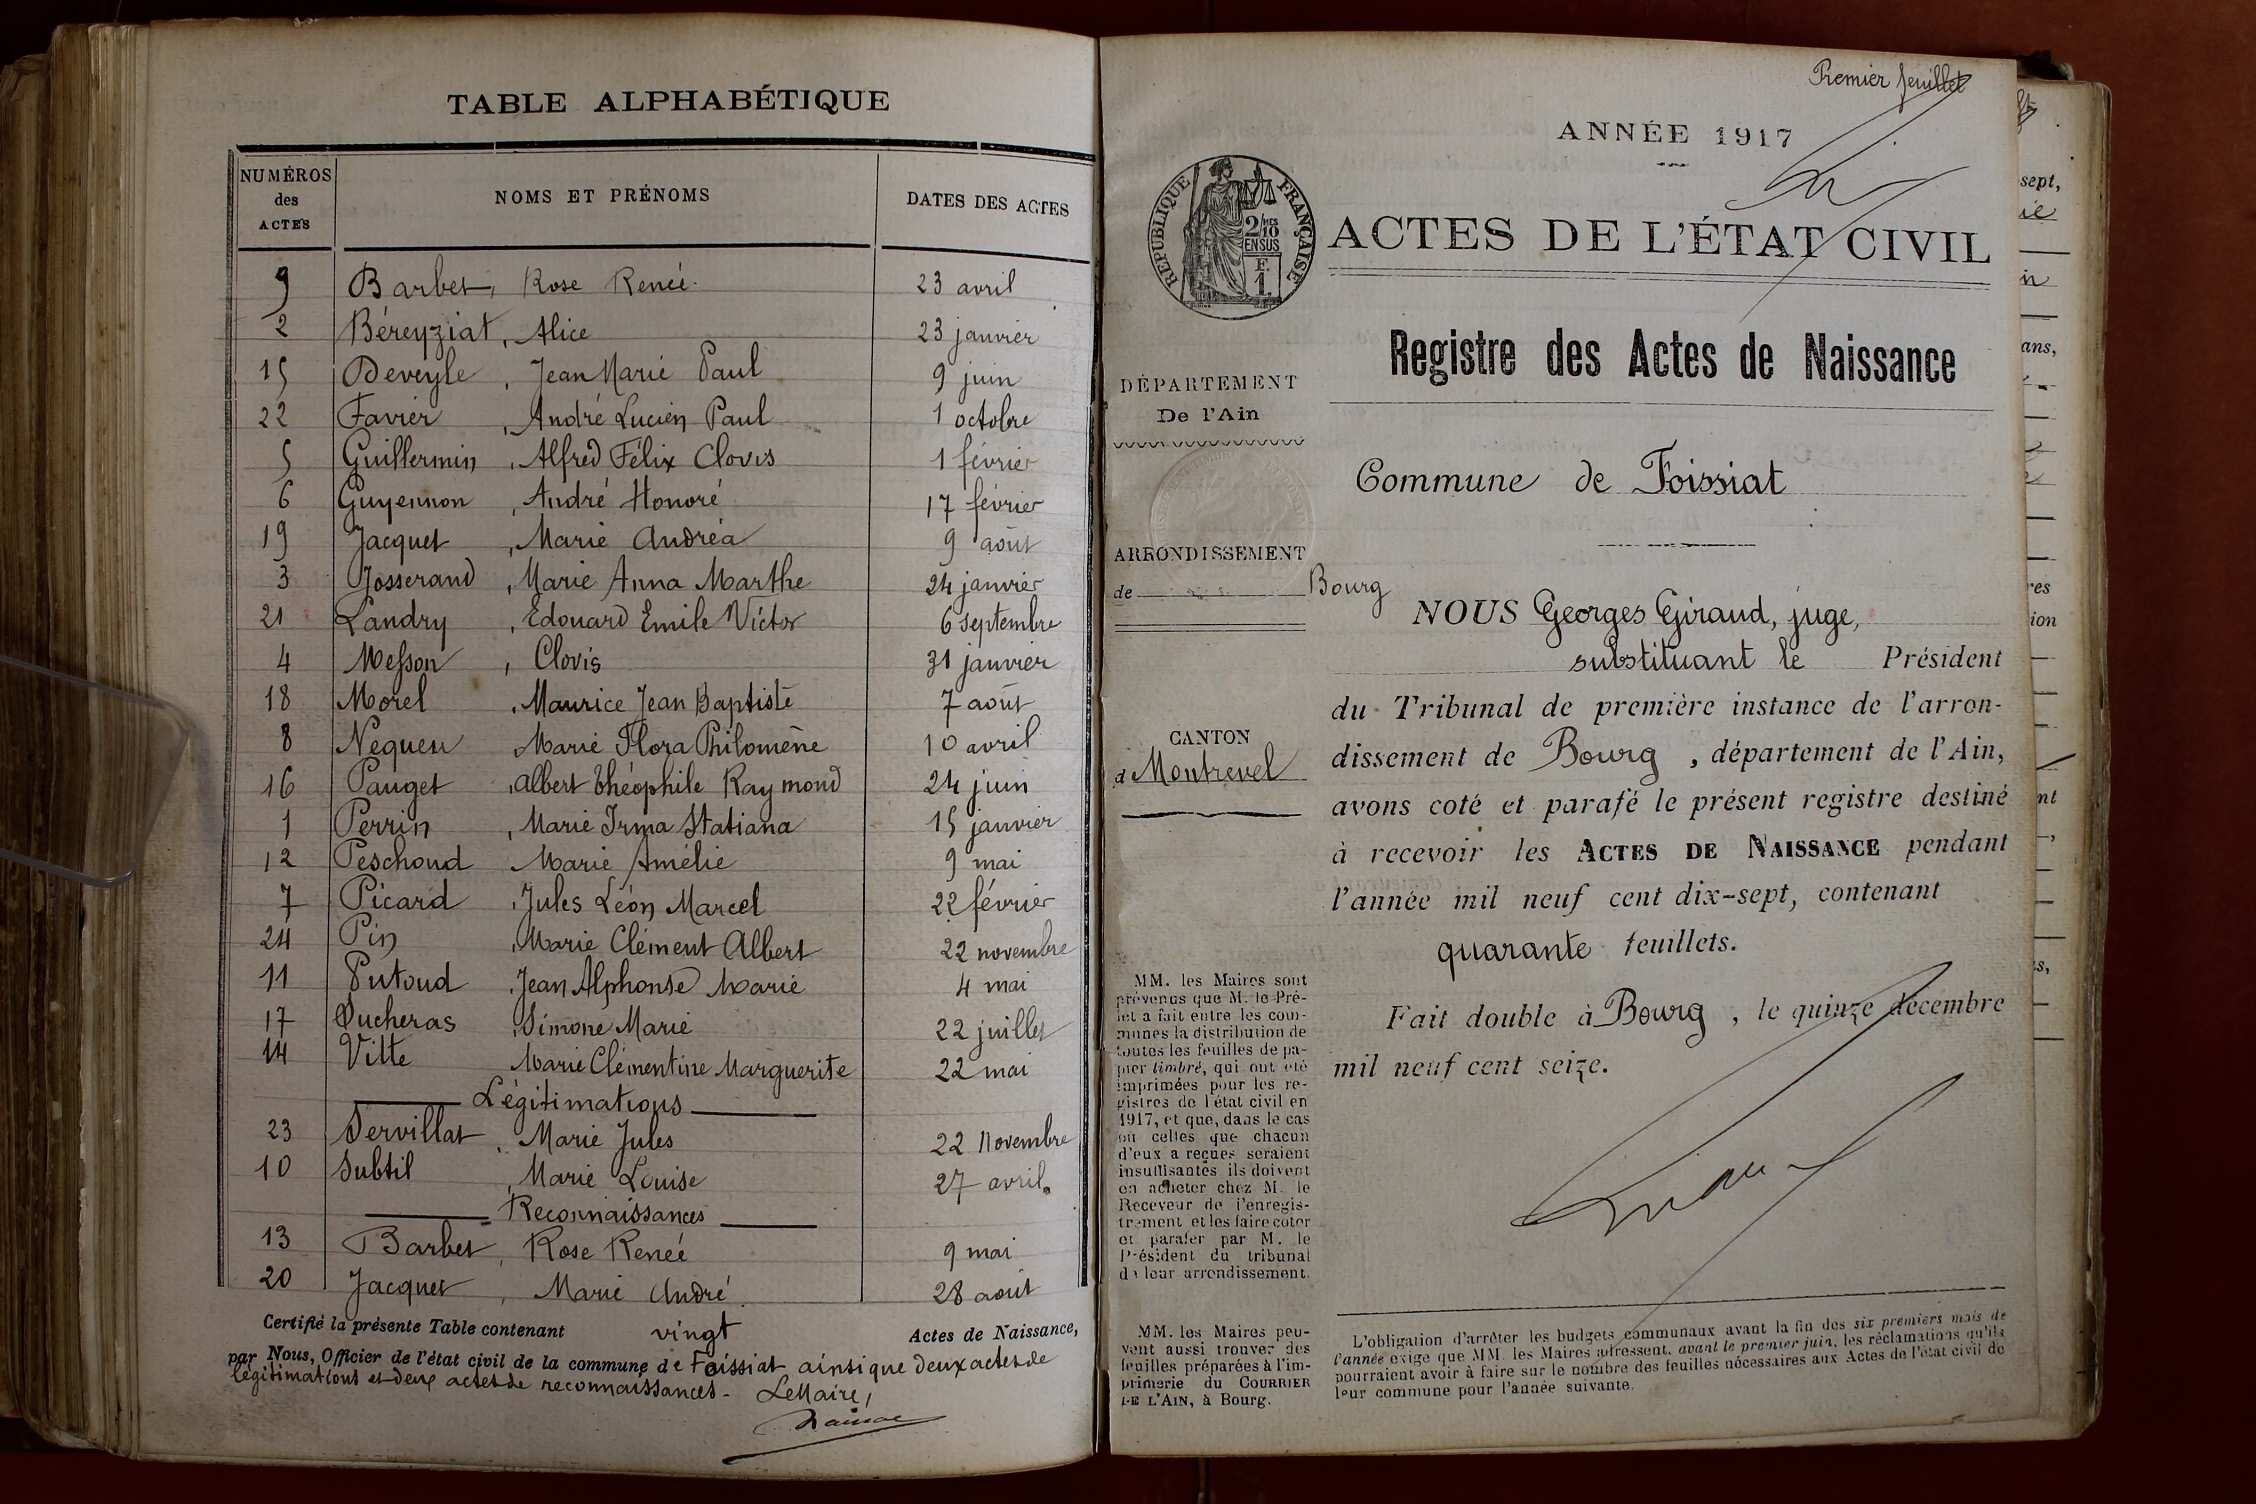 TABLE ALPHABÉTIQUE
NUMÉROS des ACTES NOMS ET PRÉNOMS DATES DES ACTES
9 Barbet, Rose Renée 23 avril
2 Béreyziat, Alice 23 janvier
15 Deveyle, Jean Marie Paul 9 juin
22 Favier, André Lucien Paul 1 octobre
5 Guillermin, Alfred Félix Clovis 1 février
6 Guyennon, André Honoré 17 février
19 Jacquet, Marie Andréa 9 août
3 Josserand, Marie Anna Marthe 24 janvier
21 Landry, Edouard Emile Victor 6 septembre
4 Messon, Clovis 31 janvier
18 Morel, Maurice Jean Baptiste 7 août
8 Nequeu Marie Flora Philomène 10 avril
16 Pauget, Albert Théophile Raymond 24 juin
1 Perrin, Marie Irma Statiana 15 janvier
12 Peschoud Marie Amélie 9 mai
7 Picard, Jules Léon Marcel 22 février
24 Pin, Marie Clément Albert 22 novembre
11 Putoud, Jean Alphonse Marie 4 mai
17 Sucheras, Simone Marie 22 juillet
14 Vitte Marie Clémentine Marguerite 22 mai
Légitimations
23 Servillat, Marie Jules 22 Novembre
10 Subtil, Marie Louise 27 avril.
Reconnaissances
13 Barbet, Rose Renée 9 mai
20 Jacquet, Marie André 28 août
Certifié la présente Table contenant vingt Actes de Naissance,
par Nous, Officier de l'état civil de la commune de Foissiat ainsi que deux actes de
légitimations et deux actes de reconnaissances - Le Maire,
Premier feuillet
ANNÉE 1917
RÉPUBLIQUE FRANÇAISE
2/10 EN SUS
F. 1
ACTES DE L'ÉTAT CIVIL
Registre des Actes de Naissance
DÉPARTEMENT
De l'Ain
Commune de Foissiat
ARRONDISSEMENT
de Bourg
CANTON
de Montrevel
NOUS Georges Giraud, juge,
substituant le Président
du Tribunal de première instance de l'arron-
dissement de Bourg, département de l'Ain,
avons coté et parafé le présent registre destiné
à recevoir les ACTES DE NAISSANCE pendant
l'année mil neuf cent dix-sept, contenant
quarante feuillets.
Fait double à Bourg, le quinze décembre
mil neuf cent seize.
MM. les Maires sont
prévenus que M. le Pré-
fet a fait entre les com-
munes la distribution de
toutes les feuilles de pa-
pier timbré, qui ont été
imprimées pour les re-
gistres de l'état civil en
1917, et que, dans le cas
où celles que chacun
d'eux a reçues seraient
insuffisantes ils doivent
en acheter chez M. le
Receveur de l'enregis-
trement et les faire coter
et parafer par M. le
Président du tribunal
de leur arrondissement.
MM. les Maires peu-
vent aussi trouver des
feuilles préparées à l'im-
primerie du COURRIER
DE L'AIN, à Bourg.
L'obligation d'arrêter les budgets communaux avant la fin des six premiers mois de
l'année exige que MM. les Maires adressent, avant le premier juin, les réclamations qu'ils
pourraient avoir à faire sur le nombre des feuilles nécessaires aux Actes de l'état civil de
leur commune pour l'année suivante.